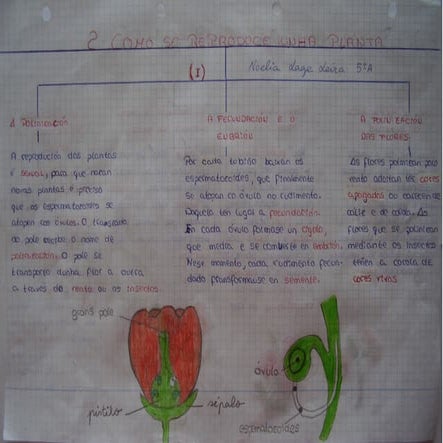 ¿ COMO SE REPRODUCE UNHA PLANTA
(I)
Noelia Lage Leira 5ºA
A POLINIZACIÓN
A reproducción das plantas
é sexual, para que nazan
novas plantas é preciso
que os espermatozoides se
atopen cos óvulos. O transporte
do pole recibe o nome de
polinización. O pole se
transporta dunha flor a outra
a través do vento ou os insectos.
A FECUNDACIÓN E O
EMBRIÓN
Por cada tubiño baixan os
espermatozoides, que finalmente
se atopan co óvulo no rudimento.
Daquela ten lugar a fecundación.
En cada óvulo fórmase un cigoto,
que medra e se convirte en embrión.
Nese momento, cada rudimento fecun-
dado transfórmase en semente.
A POLINIZACIÓN
DAS FLORES
As flores polinizan polo
vento adoitan ter cores
apagados ou carecen de
cáliz e de corola. As
flores que se polinizan
mediante os insectos
teñen a corola de
cores vivas
grans pole
pistilo
sépalo
óvulo
espermatozoides